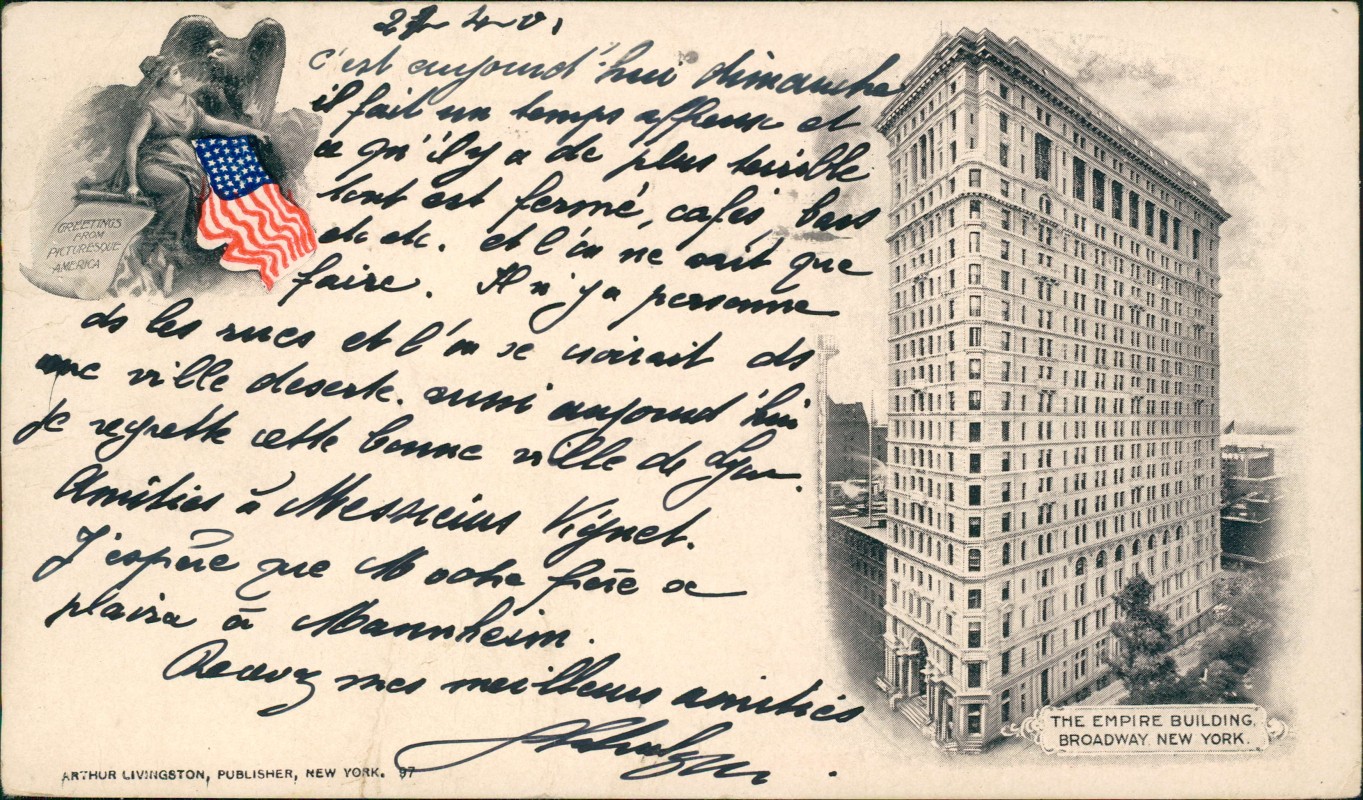 27-4-01
c'est aujourd'hui dimanche
il fait un temps affreux et
ce qu'il y a de plus terrible
tout est fermé, cafés, bars
etc etc. et l'on ne sait que
faire. Il n'y a personne
ds les rues et l'on se croirait ds
une ville deserte. aussi aujourd'hui
je regrette cette bonne ville de Lyon.
Amitiés à Messieurs Vignet.
J'espère que M votre frère se
plaira à Mannheim.
Recevez mes meilleurs amitiés
GREETINGS
FROM
PICTURESQUE
AMERICA
THE EMPIRE BUILDING,
BROADWAY, NEW YORK.
ARTHUR LIVINGSTON, PUBLISHER, NEW YORK. 97